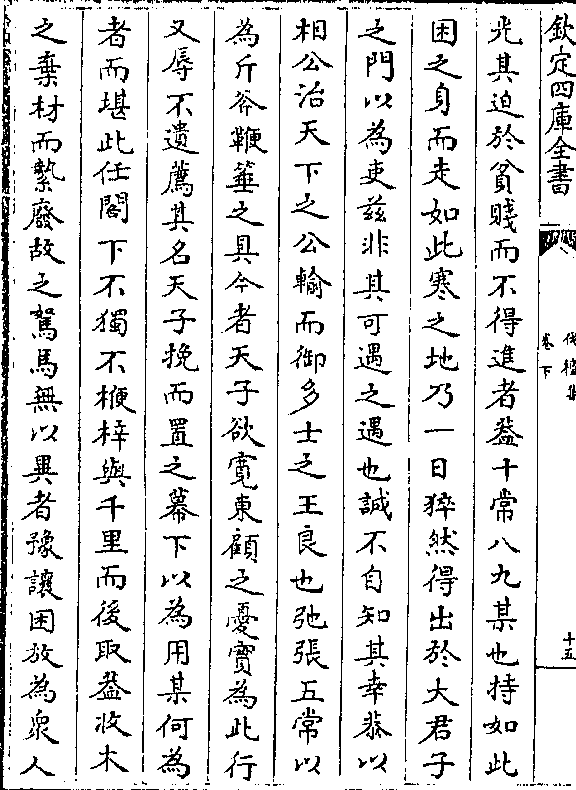 欽定四庫全書
伐檀集
卷下
十五
光其迫於貧賤而不得進者葢十常八九某也持如此
困之身而走如此寒之地乃一日猝然得出於大君子
之門以為吏兹非其可遇之遇也誠不自知其幸恭以
相公治天下之公輸而御多士之王良也弛張五常以
為斤斧鞭箠之具今者天子欲寛東顧之憂實為此行
又辱不遺薦其名天子挽而置之幕下以為用某何為
者而堪此任閤下不獨不楩梓與千里而後取葢收木
之棄材而縶廢故之駑馬無以異者豫讓困放為衆人